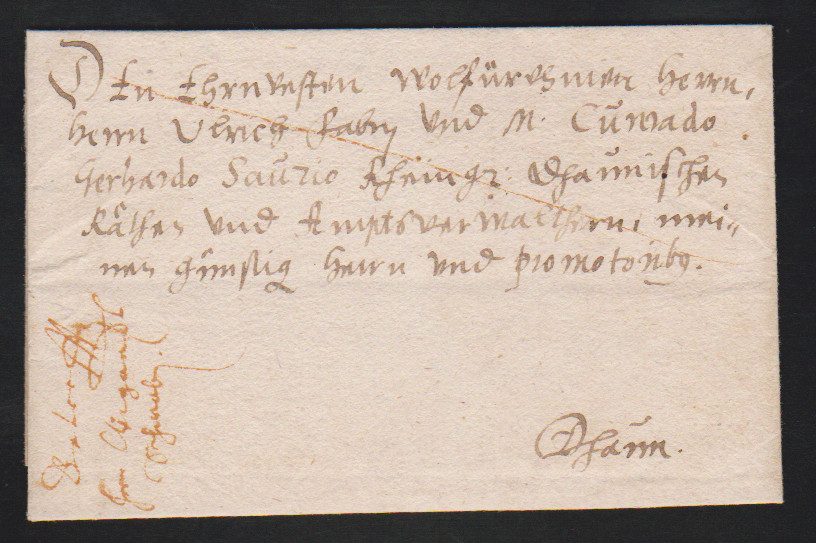 Den Ehrnvesten Wolfürnehmen Herrn,
Herrn Ulrich Fabrj und M. Cunrado
Gerhardo Saurio Rheingr: Dhaunischen
Räthen und Amptsverwalthern, mei=
nen günstig Herrn und promotoribg.
Dhaun.
Herrn